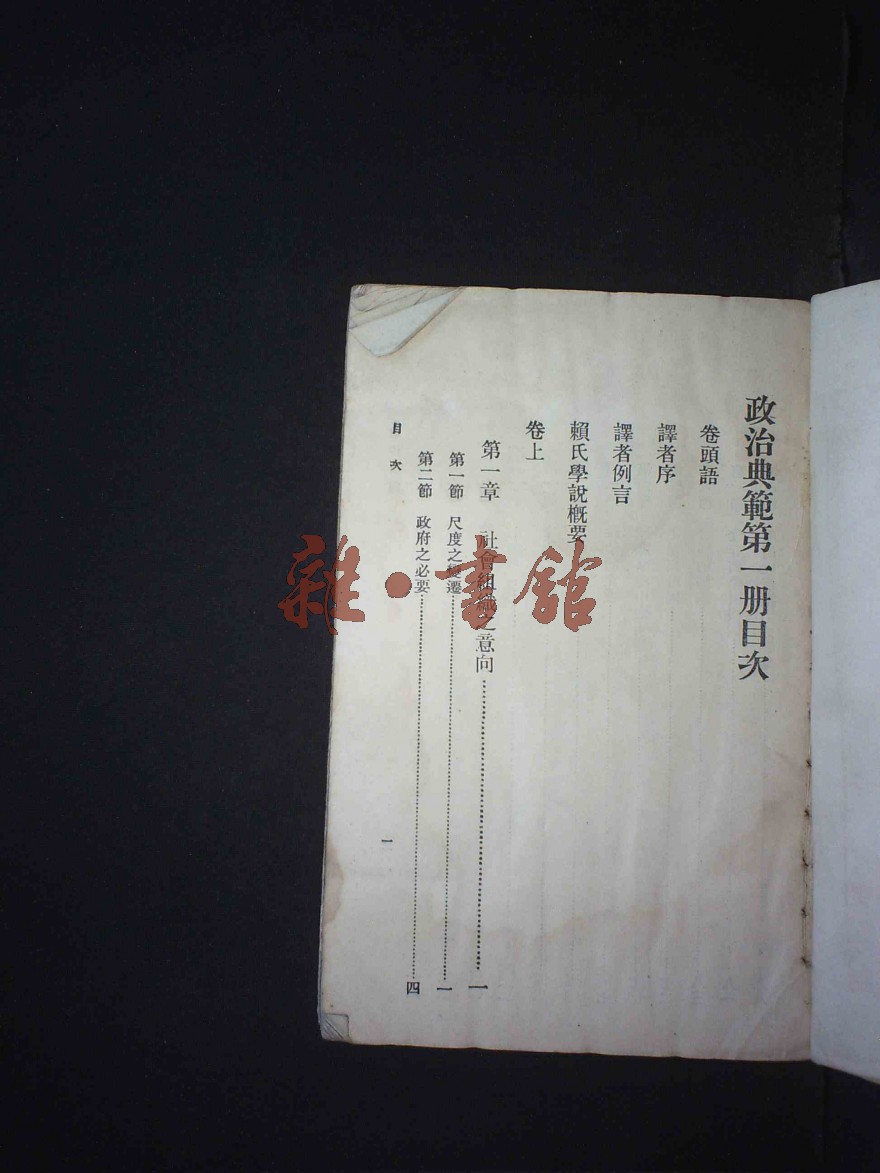 政治典範第一册目次
卷頭語
譯者序
譯者例言
賴氏學說概要
卷上
第一章 社會組織之意向 一
第一節 尺度之變遷 一
第二節 政府之必要 四
目次
一
雜·書館